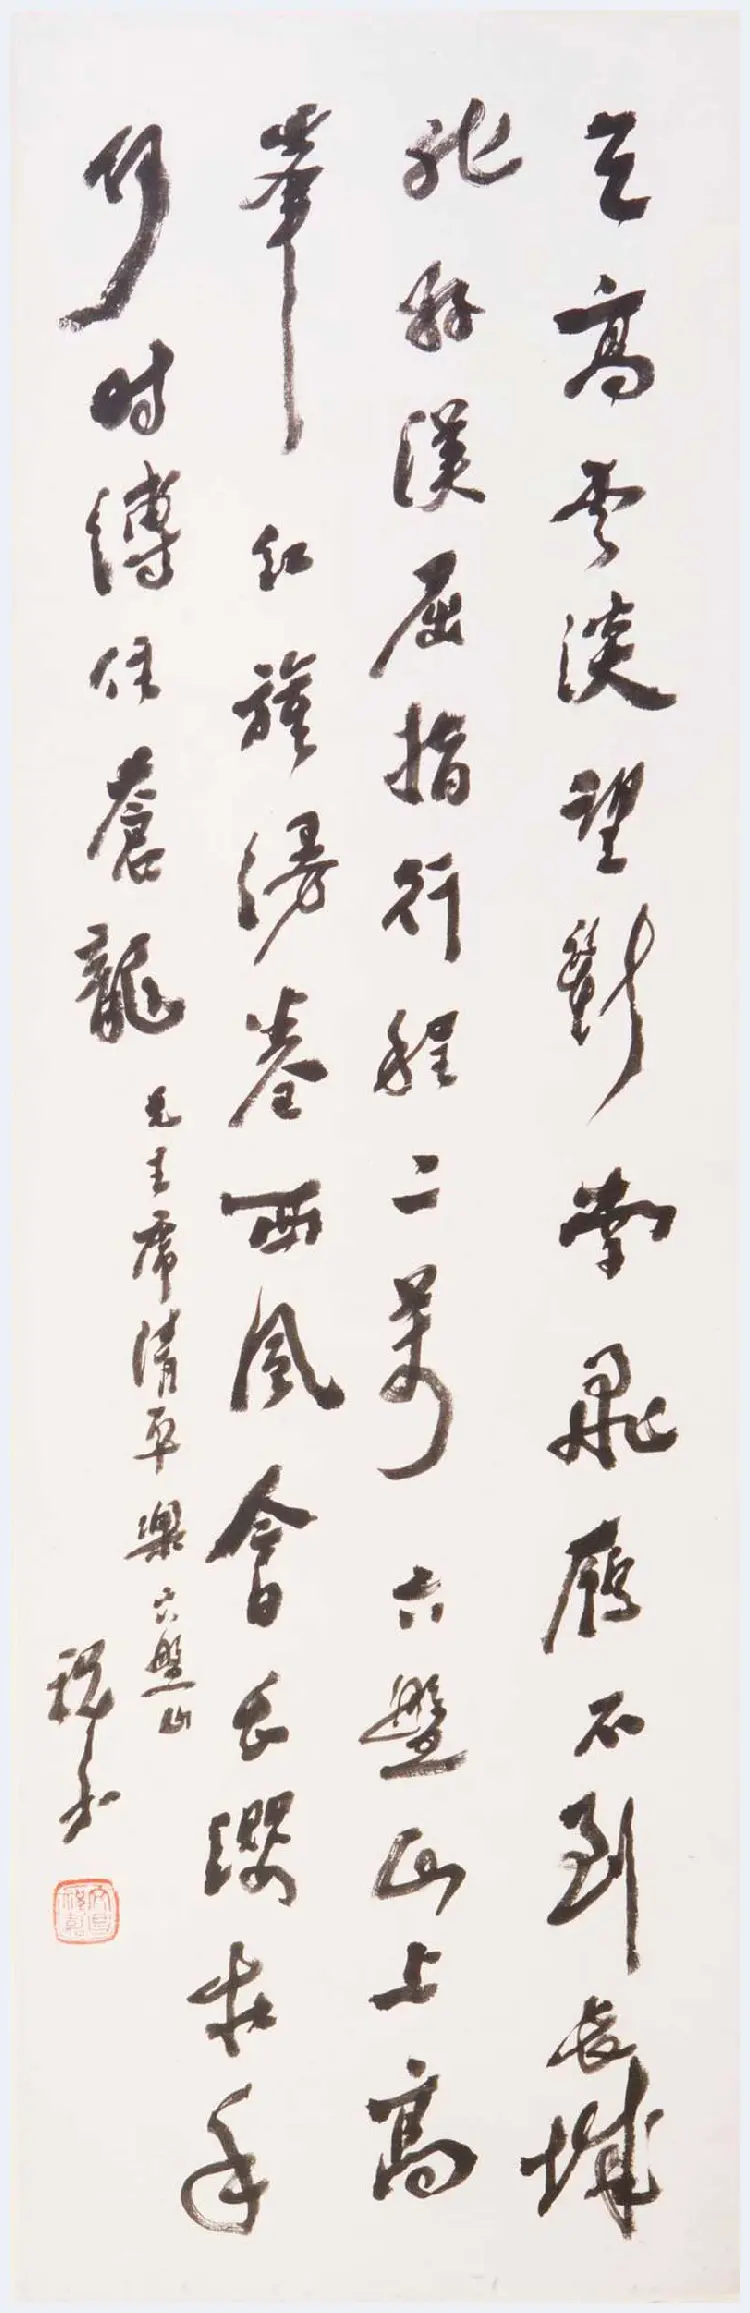 天高雲淡望斷南飛雁不到長城
非好漢屈指行程二萬六盤山上高
峯紅旗漫卷西風今日長纓在手
何時縛住蒼龍
毛主席清平樂六盤山
文昌祝嘉